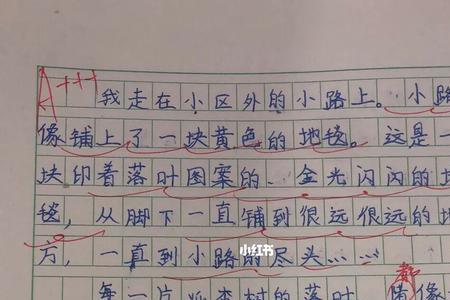 A+++
我走在小区外的小路上。小路
像铺上了一块黄色的地毯。这是一
块印着落叶图案的、金光闪闪的地
毯，从脚下一直铺到很远很远的地
方，一直到小路的尽头……
小红书
都
每一片 的落叶 像